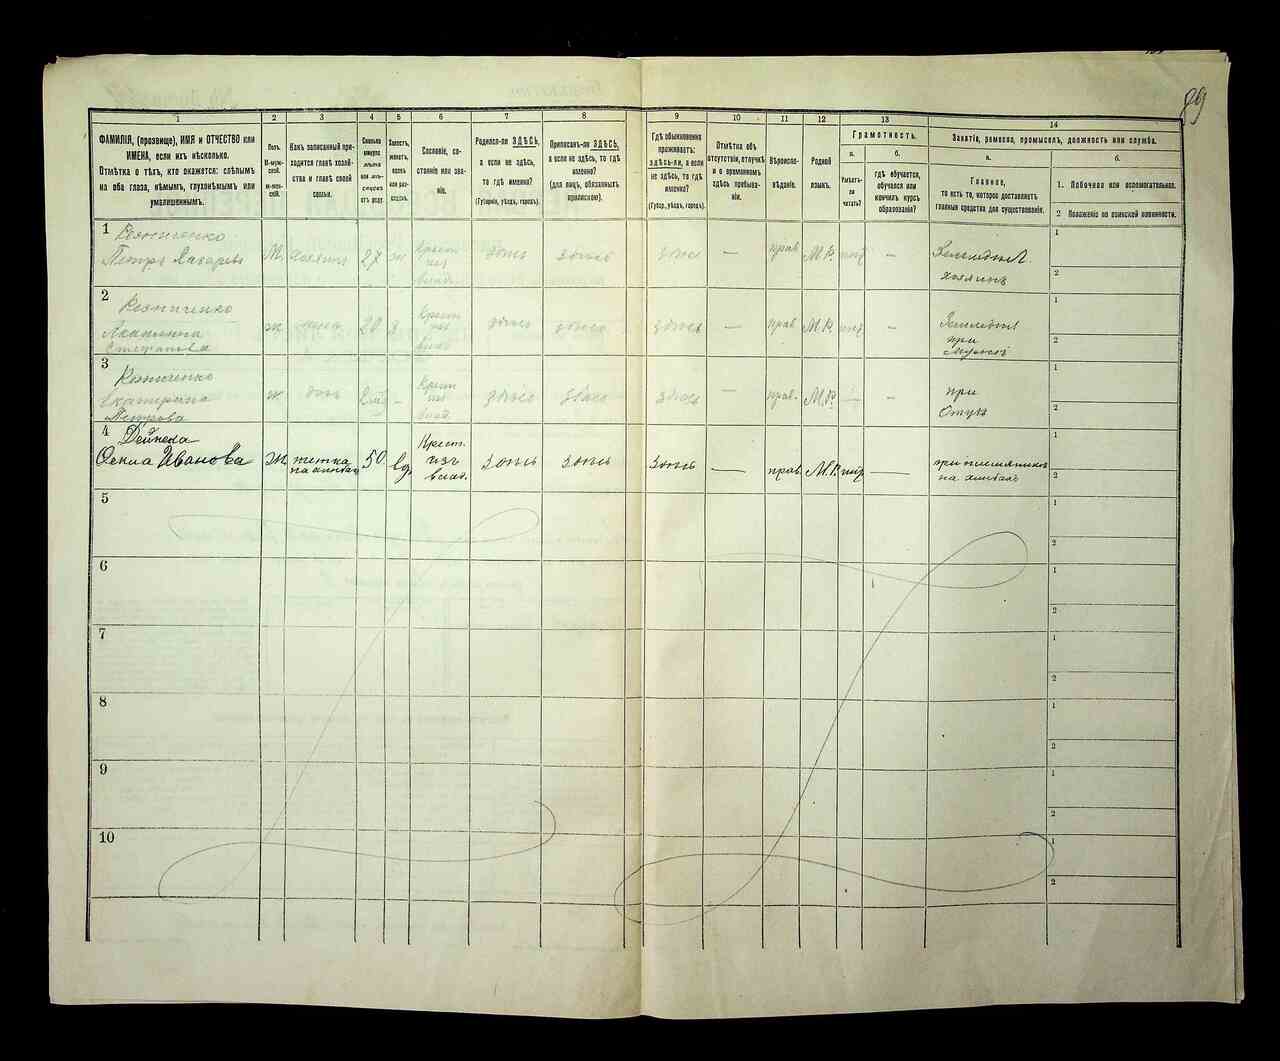 89
1
2
3
4
5
6
7
8
9
10
11
12
13
14
ФАМИЛІЯ, (прозвище), ИМЯ и ОТЧЕСТВО или
ИМЕНА, если ихъ нѣсколько.
Отмѣтка о тѣхъ, кто окажется: слѣпымъ
на оба глаза, нѣмымъ, глухонѣмымъ или
умалишеннымъ.
Полъ.
М-муж-
ской.
Ж-жен-
скій.
Какъ записанный при-
ходится главѣ хозяй-
ства и главѣ своей
семьи.
Сколько
минуло
лѣтъ
или мѣ-
сяцевъ
отъ роду.
Холостъ,
женатъ,
вдовъ
или раз-
веденъ.
Сословіе, со-
стояніе или зва-
ніе.
Родился-ли ЗДѢСЬ,
а если не здѣсь,
то гдѣ именно?
(Губернія, уѣздъ, городъ).
Приписанъ-ли ЗДѢСЬ,
а если не здѣсь, то гдѣ
именно?
(для лицъ, обязанныхъ
припискою).
Гдѣ обыкновенно
проживаетъ:
здѣсь-ли, а если
не здѣсь, то гдѣ
именно?
(Губер., уѣздъ, городъ).
Отмѣтка объ
отсутствіи, отлучкѣ
и о временномъ
здѣсь пребыва-
ніи.
Вѣроиспо-
вѣданіе.
Родной
языкъ.
Грамотность.
а.
Умѣетъ-
ли
читать?
б.
гдѣ обучается,
обучался или
кончилъ курсъ
образованія?
Занятіе, ремесло, промыселъ, должность или служба.
а.
Главное,
то есть то, которое доставляетъ
главныя средства для существованія.
б.
1. Побочное или вспомогательное.
2 Положеніе по воинской повинности.
1 Резниченко
Петръ Захаровъ М хозяинъ 27 ж Крест. изъ влад. здѣсь здѣсь здѣсь — прав. М.Р. — Земледѣл. хозяинъ 1 2
2 Резниченко
Акилина
Степанова ж жена 20 з Крест. изъ влад. здѣсь здѣсь здѣсь — прав. М.Р. — Земледѣл. при мужѣ 1 2
3 Резниченко
Екатерина
Петрова ж дочь — Крест. изъ влад. здѣсь здѣсь здѣсь — прав. М.Р. — — при отцѣ 1 2
4 Дейнега
Иванова ж тетка 50 вд. Крест. изъ влад. здѣсь здѣсь здѣсь — прав. М.Р. — при племянникѣ на хлѣбахъ 1 2
5 1 2
6 1 2
7 1 2
8 1 2
9 1 2
10 1 2